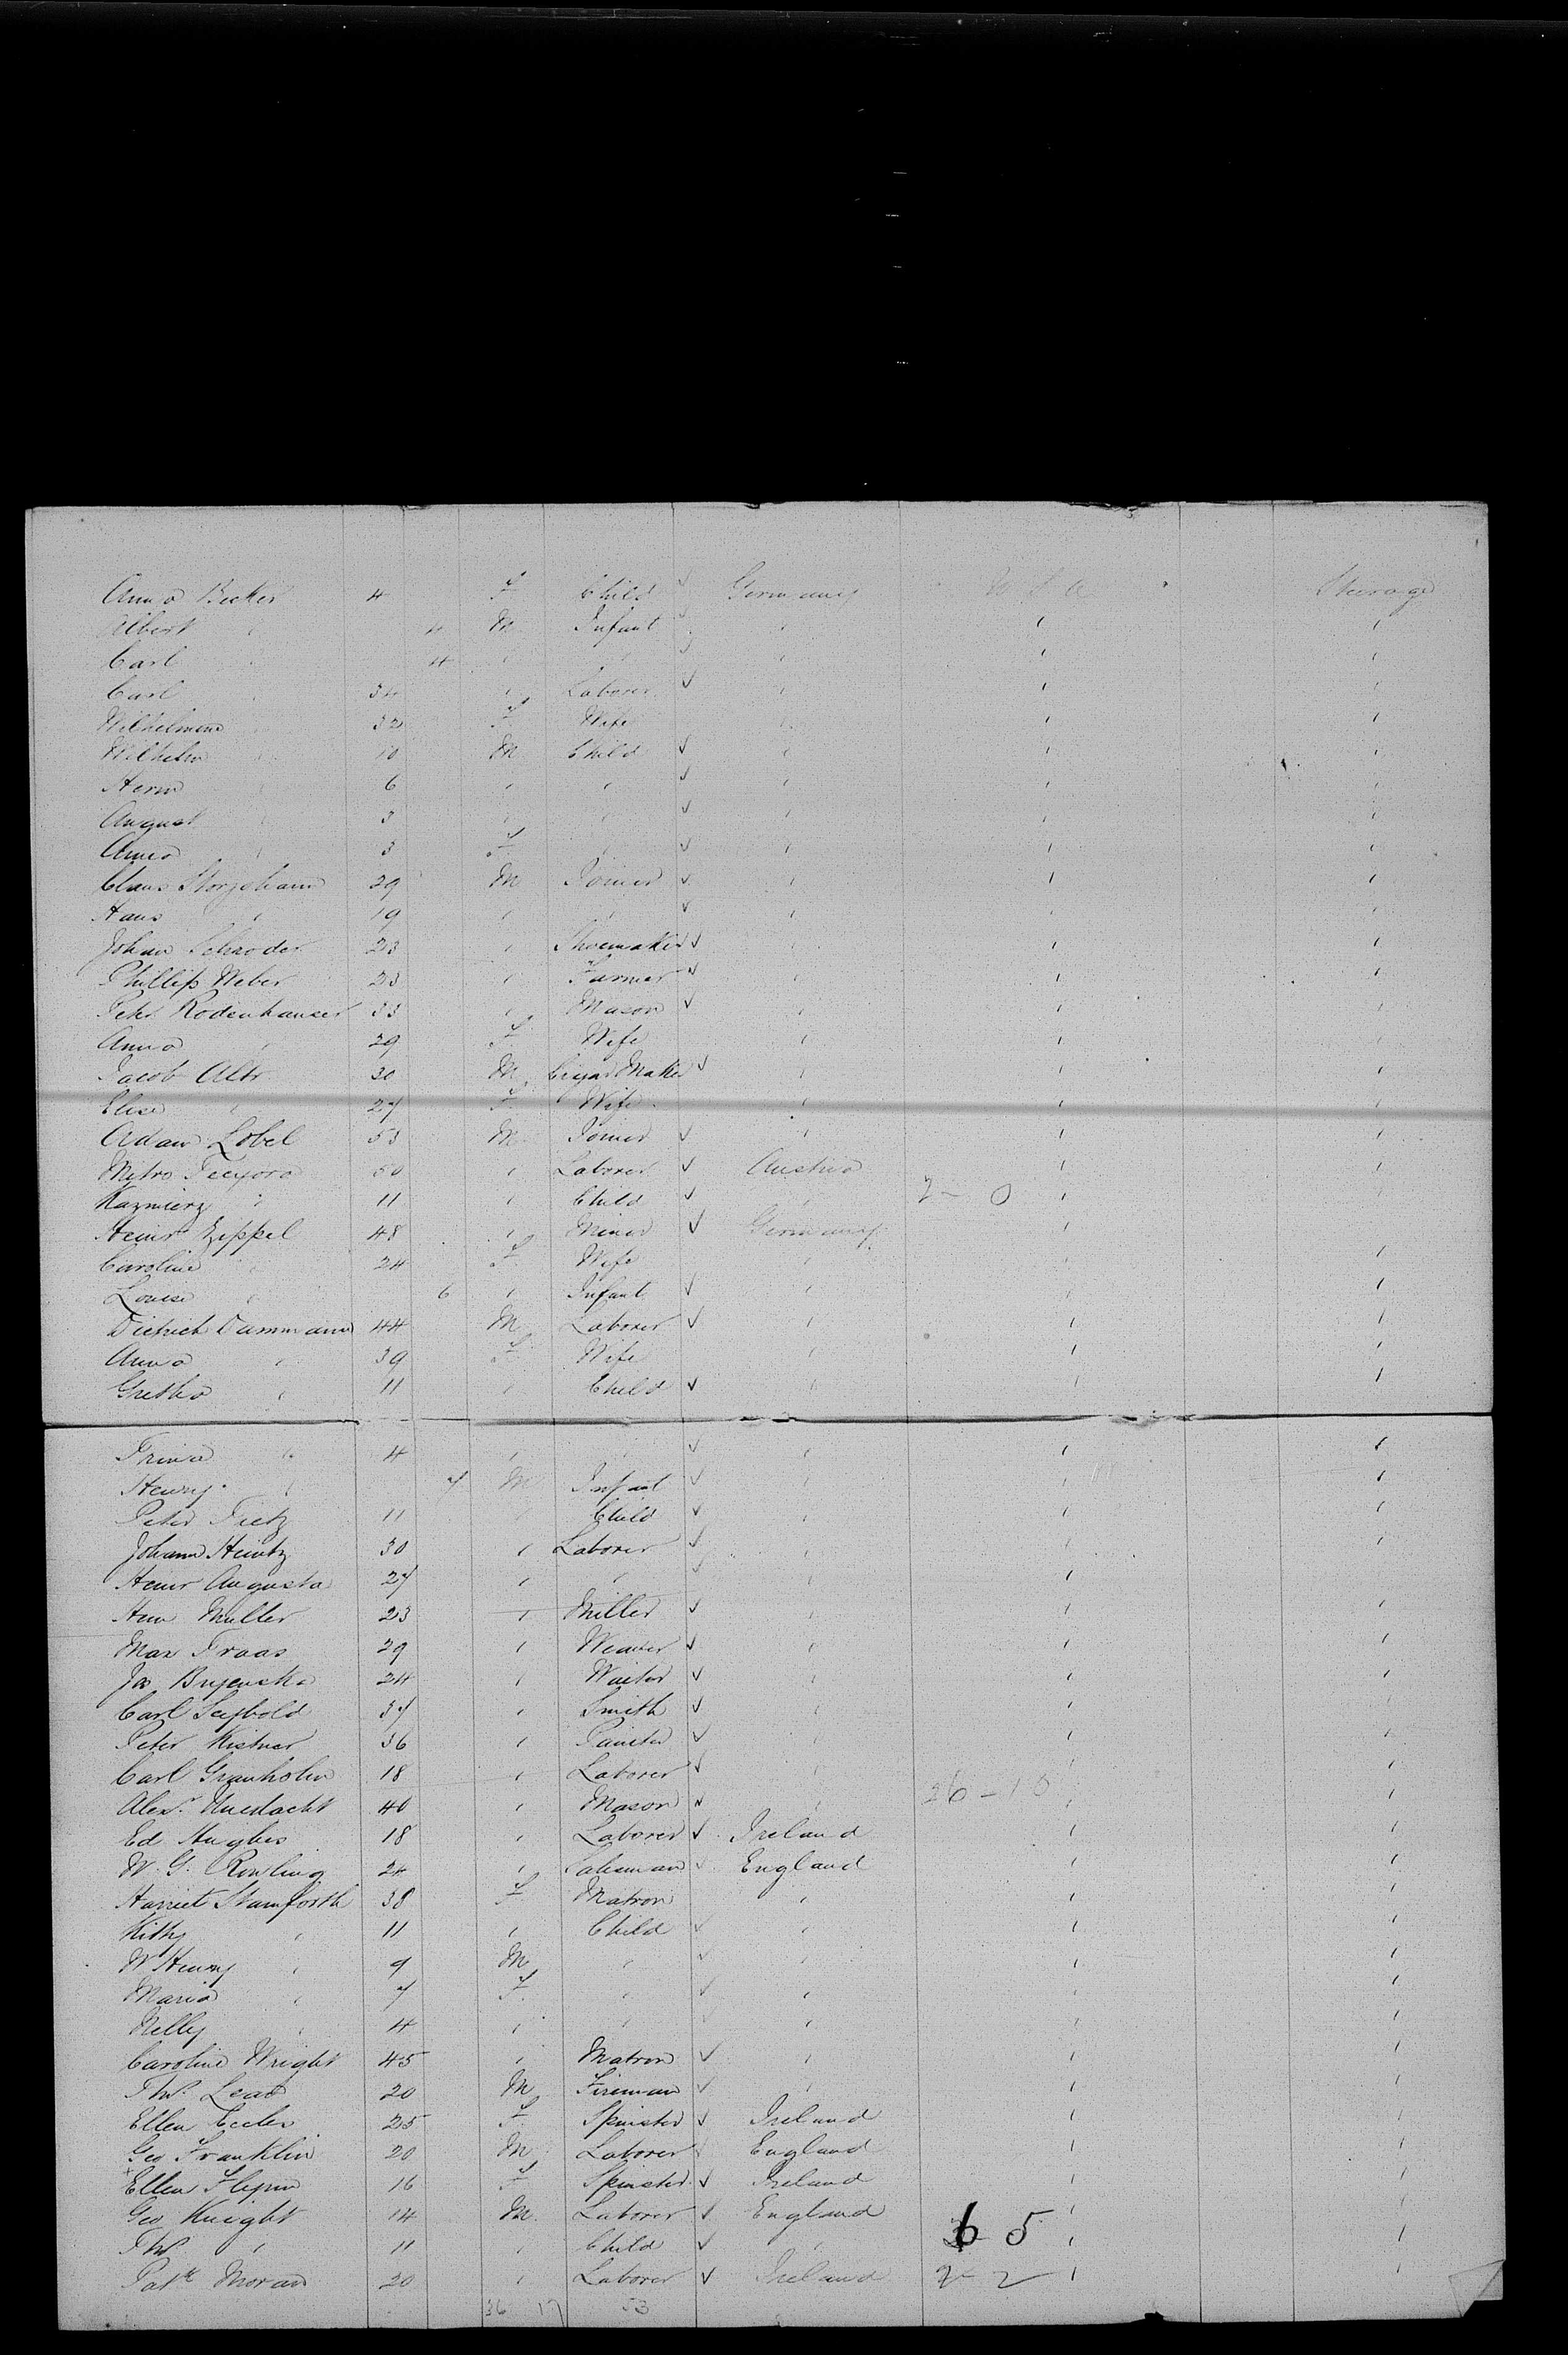 Anna Becker 4 F Child ✓ Germany U S A Steerage
Albert " 4 M Infant ✓ " " "
Carl " 4 " " ✓ " " "
Carl " 34 " Laborer ✓ " " "
Wilhelmine " 32 F Wife " " "
Wilhelm " 10 M Child ✓ " " "
Herm " 6 " " ✓ " " "
August " 3 " " ✓ " " "
Anna " 3 F " ✓ " " "
Claus Storjohann 29 M Joiner ✓ " " "
Hans " 19 " " ✓ " " "
Johan Schroder 23 " Shoemaker ✓ " " "
Phillip Weber 23 " Farmer ✓ " " "
Peter Rodenhauser 33 " Mason ✓ " " "
Anna " 29 F Wife " " "
Jacob Alt 30 M Cigar Maker ✓ " " "
Elise " 27 F Wife " " "
Adam Lobel 53 M Joiner ✓ " " "
Mitro 50 " Laborer ✓ Austria " "
Kazmierz " 11 " Child ✓ " 2 - 0 " "
Heinr Zippel 48 " Miner ✓ Germany "
Caroline " 24 F Wife " " "
Louise " 6 " Infant ✓ " " "
Dietrich Dammann 44 M Laborer ✓ " " "
Anna " 39 F Wife " " "
Gretha " 11 " Child ✓ " " "
Trina " 4 " " ✓ " " "
Henry " 7 M Infant ✓ " " "
Peter Tietz 11 " Child ✓ " " "
Johann Heintz 30 " Laborer ✓ " " "
Heinr Augusta 27 " " ✓ " "
Hen Muller 23 " Miller ✓ " " "
Max Fraas 29 " Weaver ✓ " " "
Jos 24 " Waiter ✓ " " "
Carl Seybold 37 " Smith ✓ " "
Peter Kistner 36 " Painter ✓ " " "
Carl Granholm 18 " Laborer ✓ " " "
Alexr 40 " Mason ✓ " 26 - 13 " "
Ed Hughes 18 " Laborer ✓ Ireland " "
W. G. Rowling 24 " Salesman ✓ England " "
Harriet Stamforth 38 F Matron " " "
Kitty " 11 " Child ✓ " " "
W Henry " 9 M " ✓ " " "
Maria " 7 F " ✓ " " "
Nelly " 4 " " ✓ " " "
Caroline Wright 45 " Matron ✓ " " "
Thos. Lead 20 M Fireman ✓ " " "
Ellen Eccles 25 F Spinster ✓ Ireland " "
Geo Franklin 20 M Laborer ✓ England " "
Ellen Flynn 16 F Spinster ✓ Ireland " "
Geo Knight 14 M Laborer ✓ England " "
Thos " 11 " Child ✓ " 6 5 " "
Patk Moran 20 " Laborer ✓ Ireland 2 - 2 " "
36 17 53